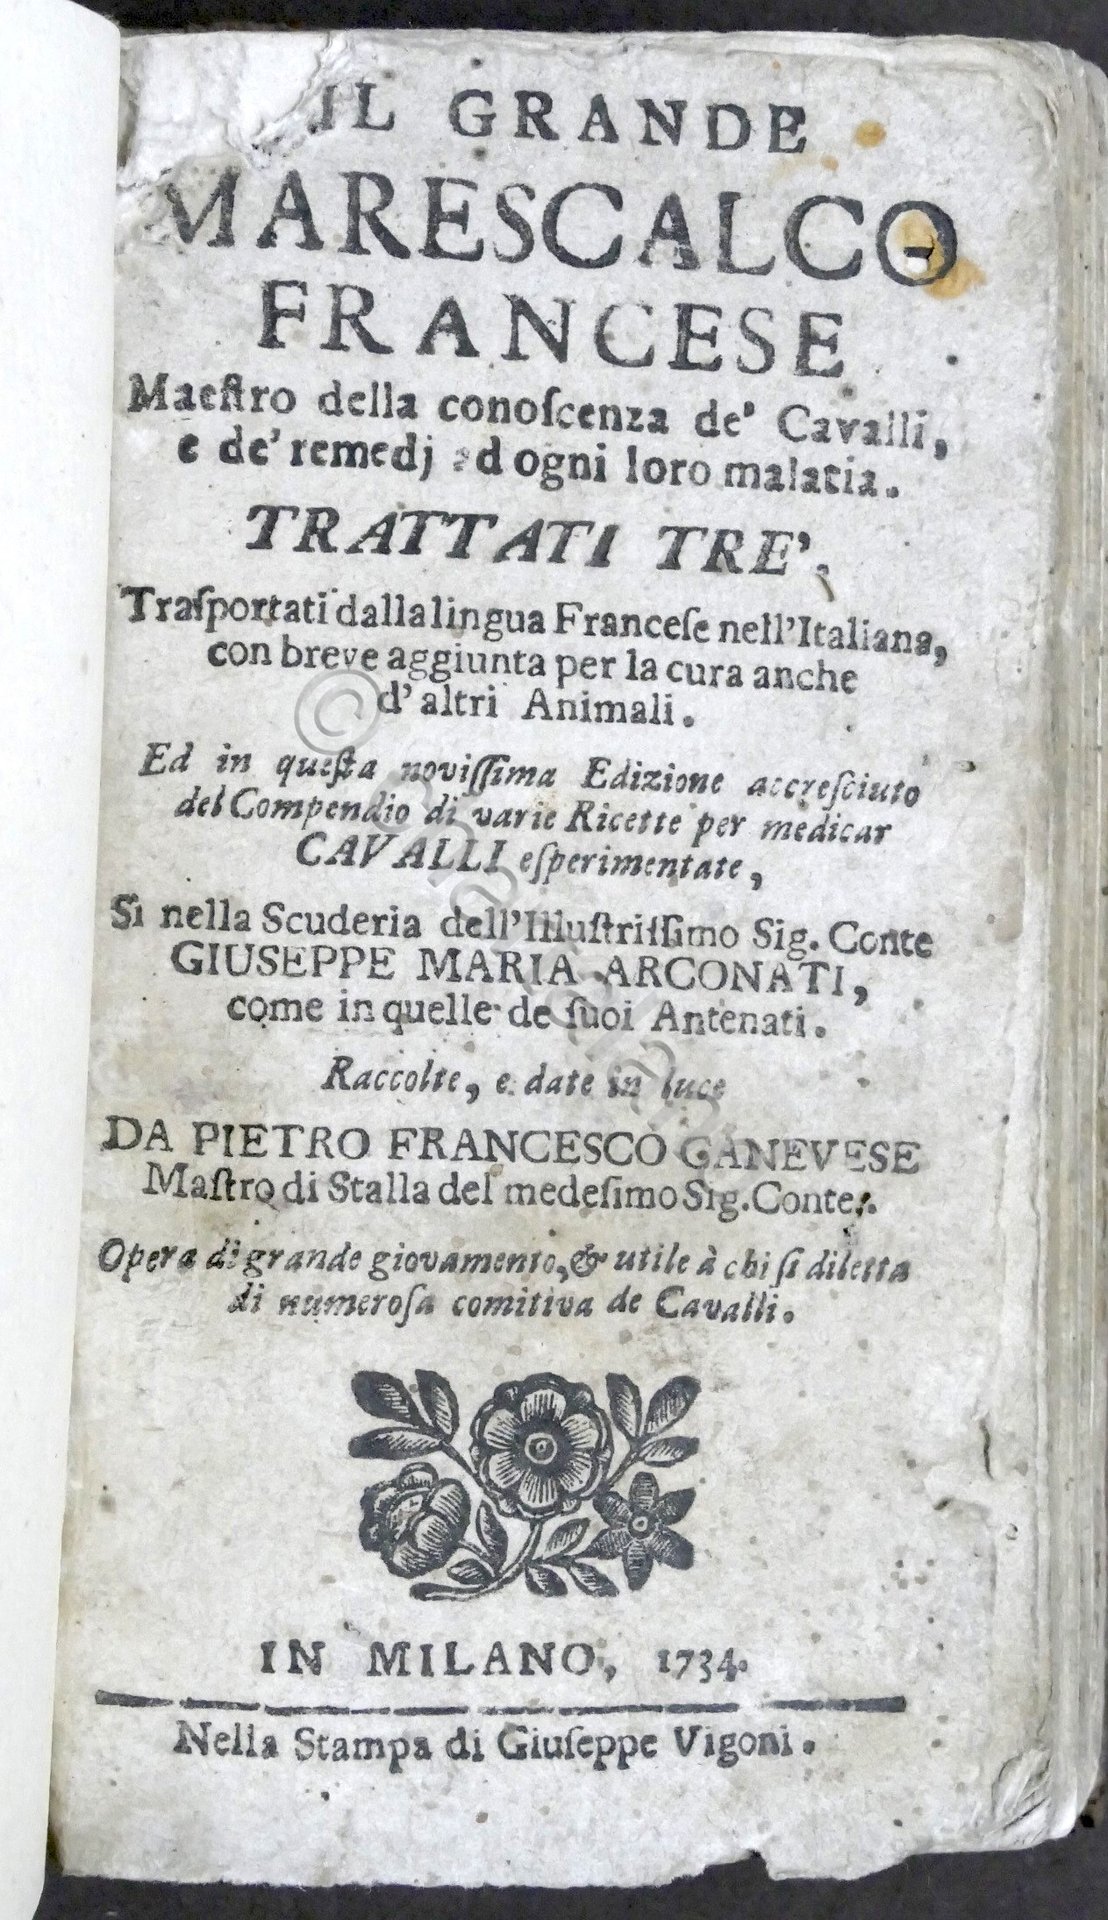 IL GRANDE
MARESCALCO
FRANCESE
Maeſtro della conoſcenza de' Cavalli,
e de' remedj ad ogni loro malatia.
TRATTATI TRE'.
Traſportati dalla lingua Franceſe nell'Italiana,
con breve aggiunta per la cura anche
d'altri Animali.
Ed in queſta noviſſima Edizione accreſciuto
del Compendio di varie Ricette per medicar
CAVALLI eſperimentate,
Sì nella Scuderia dell'Illuſtriſſimo Sig. Conte
GIUSEPPE MARIA ARCONATI,
come in quelle de ſuoi Antenati.
Raccolte, e date in luce
DA PIETRO FRANCESCO CANEVESE
Maſtro di Stalla del medeſimo Sig. Conte.
Opera di grande giovamento, & utile à chi ſi diletta
di numeroſa comitiva de Cavalli.
IN MILANO, 1734.
Nella Stampa di Giuſeppe Vigoni.